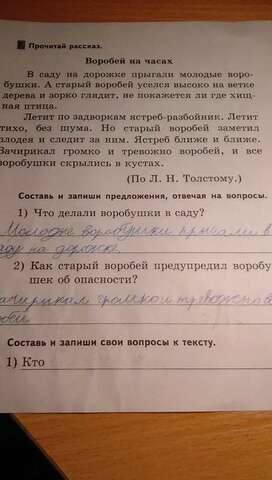 Прочитай рассказ.
Воробей на часах
В саду на дорожке прыгали молодые воро-
бушки. А старый воробей уселся высоко на ветке
дерева и зорко глядит, не покажется ли где хищ-
ная птица.
Летит по задворкам ястреб-разбойник. Летит
тихо, без шума. Но старый воробей заметил
злодея и следит за ним. Ястреб ближе и ближе.
Зачирикал громко и тревожно воробей, и все
воробушки скрылись в кустах.
(По Л. Н. Толстому.)
Составь и запиши предложения, отвечая на вопросы.
1) Что делали воробушки в саду?
Молодые воробушки прыгали в
саду на дорожке
2) Как старый воробей предупредил воробу-
шек об опасности?
Зачирикал громко и тревожно во
робей
Составь и запиши свои вопросы к тексту.
1) Кто